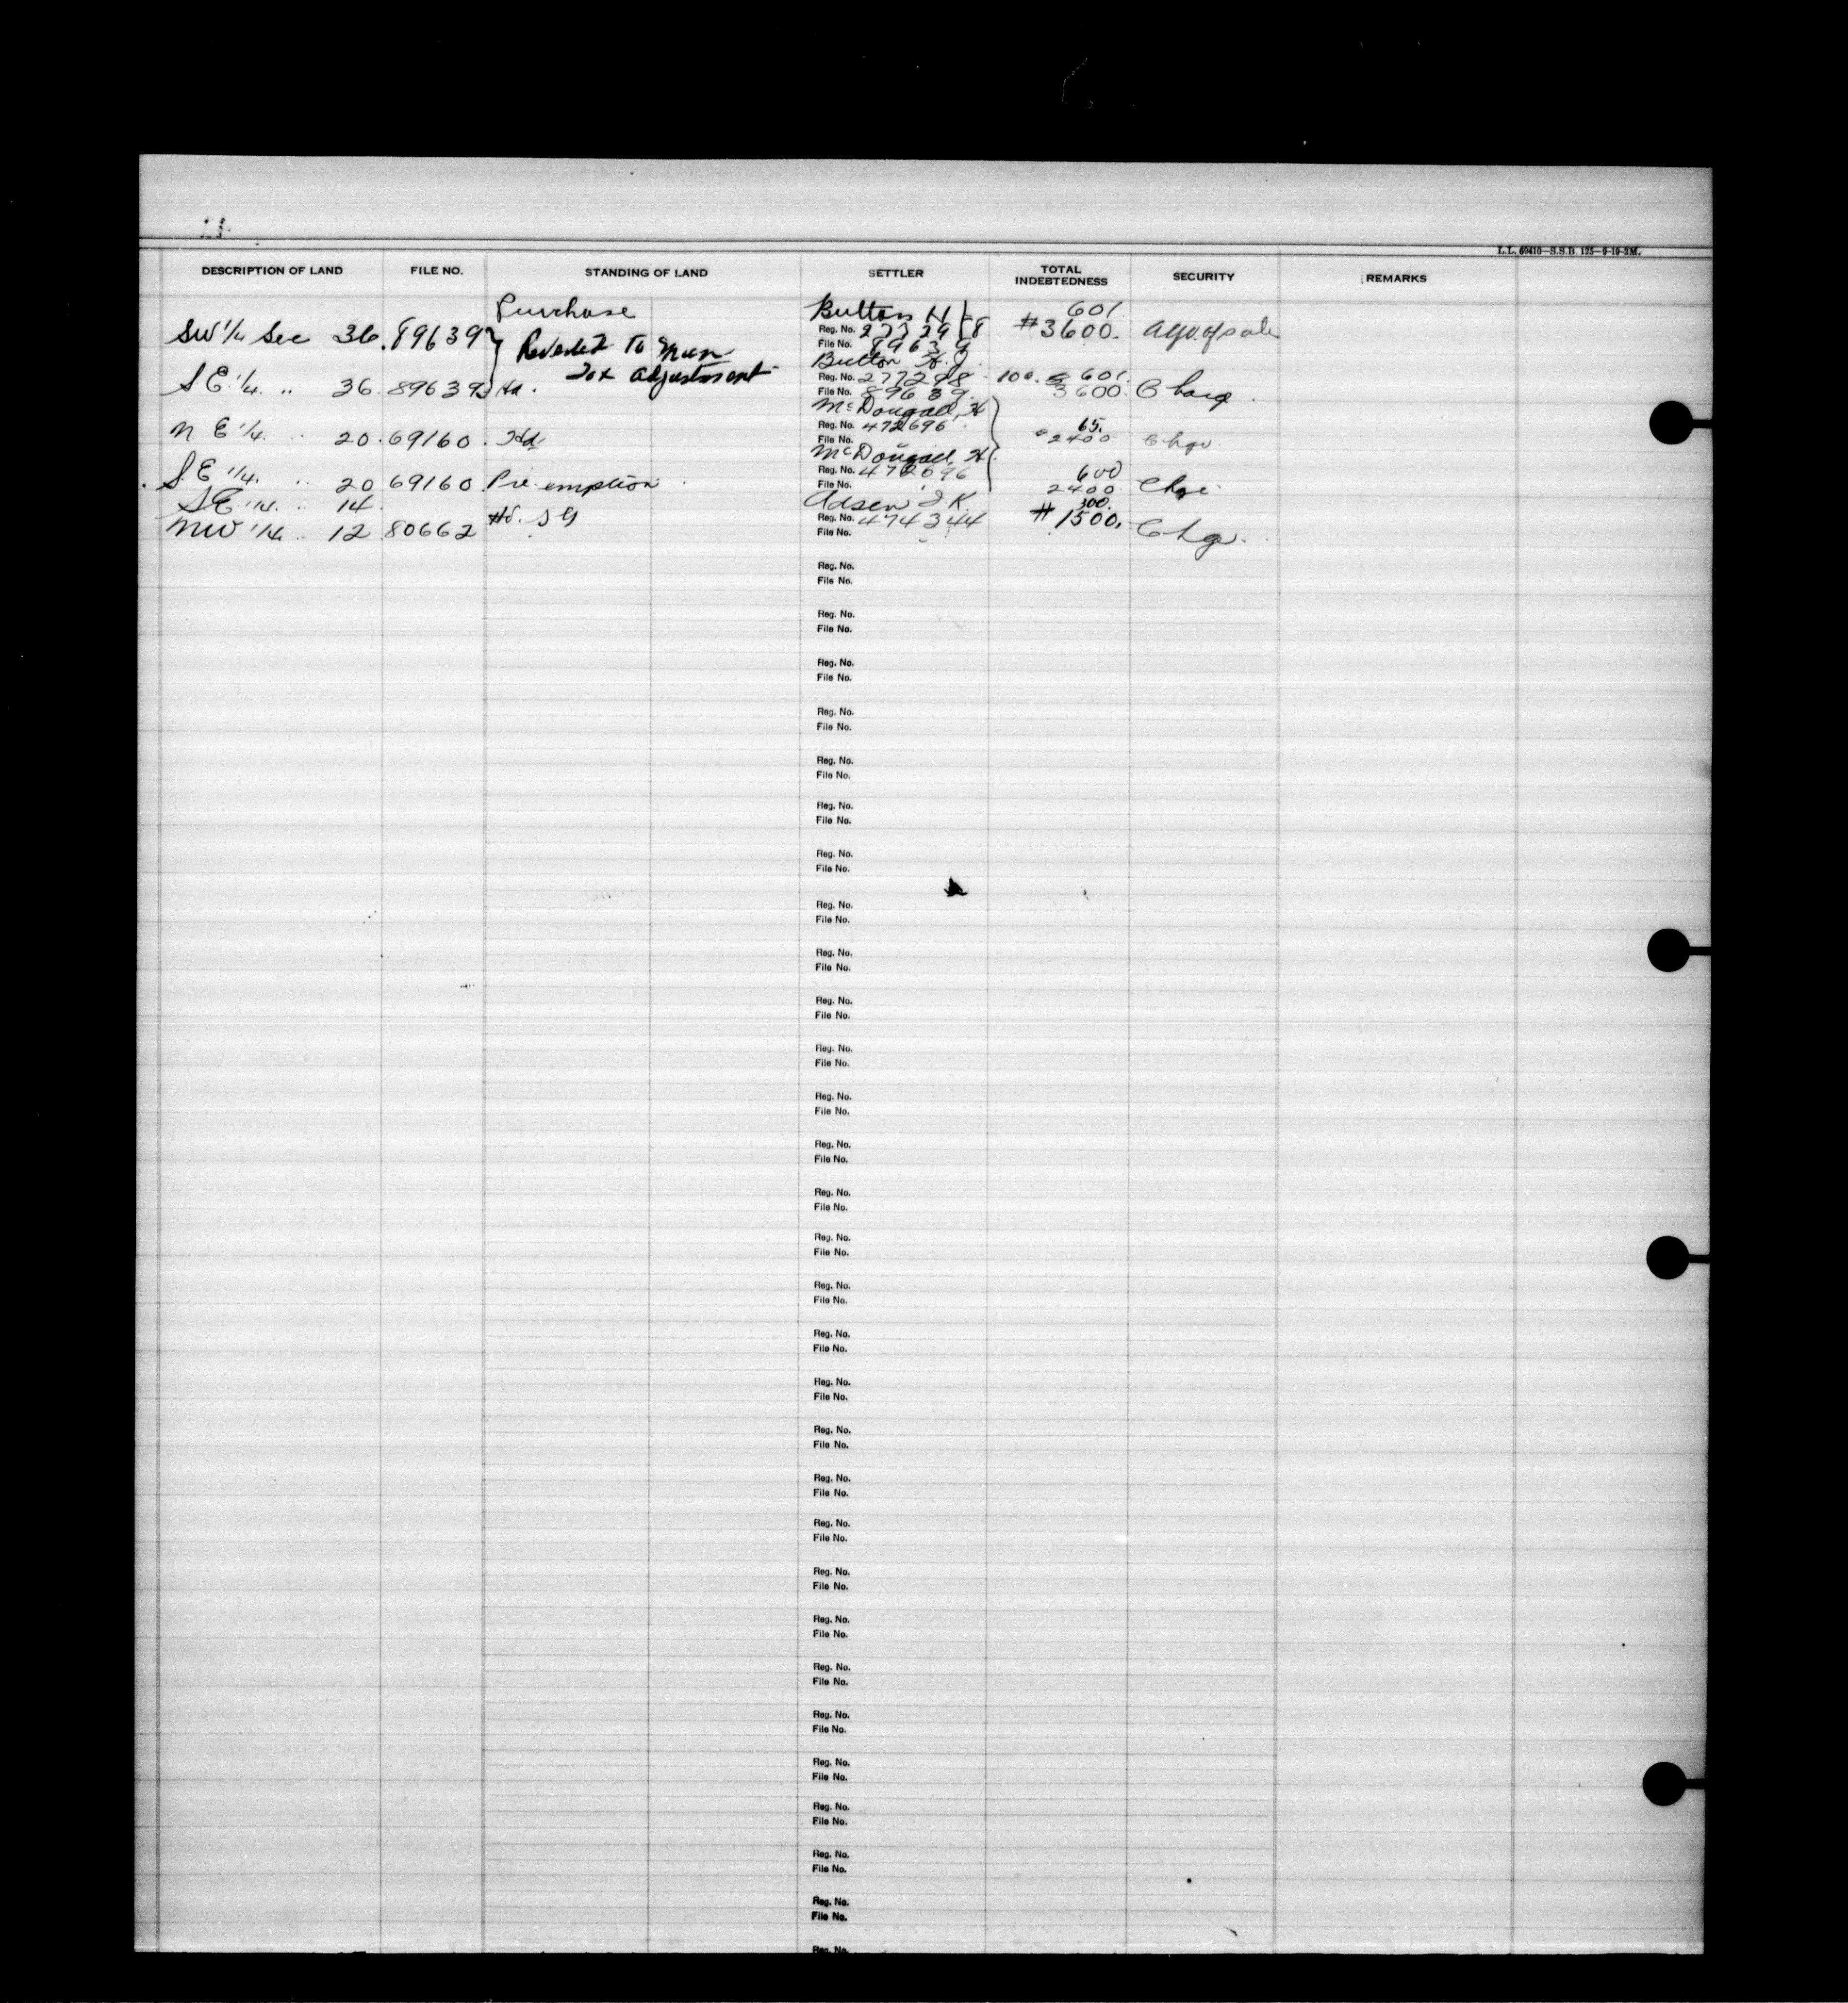 L.L. 69410—S.S.B. 125—9-19-2M.
DESCRIPTION OF LAND FILE NO. STANDING OF LAND SETTLER TOTAL INDEBTEDNESS SECURITY REMARKS
Purchase Button H 601.
SW 1/4 Sec 36. 89639 Reg. No. 277298 #3600. Agr. of sale
Reverted To Mun File No. 89639
Tax adjustment Button H. J.
S E 1/4 " 36. 89639 Hd. Reg. No. 277298 100. 601.
File No. 89639 3600. Charge
McDougall, H
N E 1/4 " 20. 69160. Hd Reg. No. 472696 65.
File No. 2400 Chge
McDougall, H.
S. E 1/4 " 20 69160 Pre-emption Reg. No. 472696 600
File No. 2400 Chge
S E 1/4 " 14. Adsen K 300.
NW 1/4 " 12 80662 Hd. S G Reg. No. 474344 #1500. Chge.
File No.
Reg. No.
File No.
Reg. No.
File No.
Reg. No.
File No.
Reg. No.
File No.
Reg. No.
File No.
Reg. No.
File No.
Reg. No.
File No.
Reg. No.
File No.
Reg. No.
File No.
Reg. No.
File No.
Reg. No.
File No.
Reg. No.
File No.
Reg. No.
File No.
Reg. No.
File No.
Reg. No.
File No.
Reg. No.
File No.
Reg. No.
File No.
Reg. No.
File No.
Reg. No.
File No.
Reg. No.
File No.
Reg. No.
File No.
Reg. No.
File No.
Reg. No.
File No.
Reg. No.
File No.
Reg. No.
File No.
Reg. No.
File No.
Reg. No.
File No.
Reg. No.
File No.
Reg. No.
File No.
Reg. No.